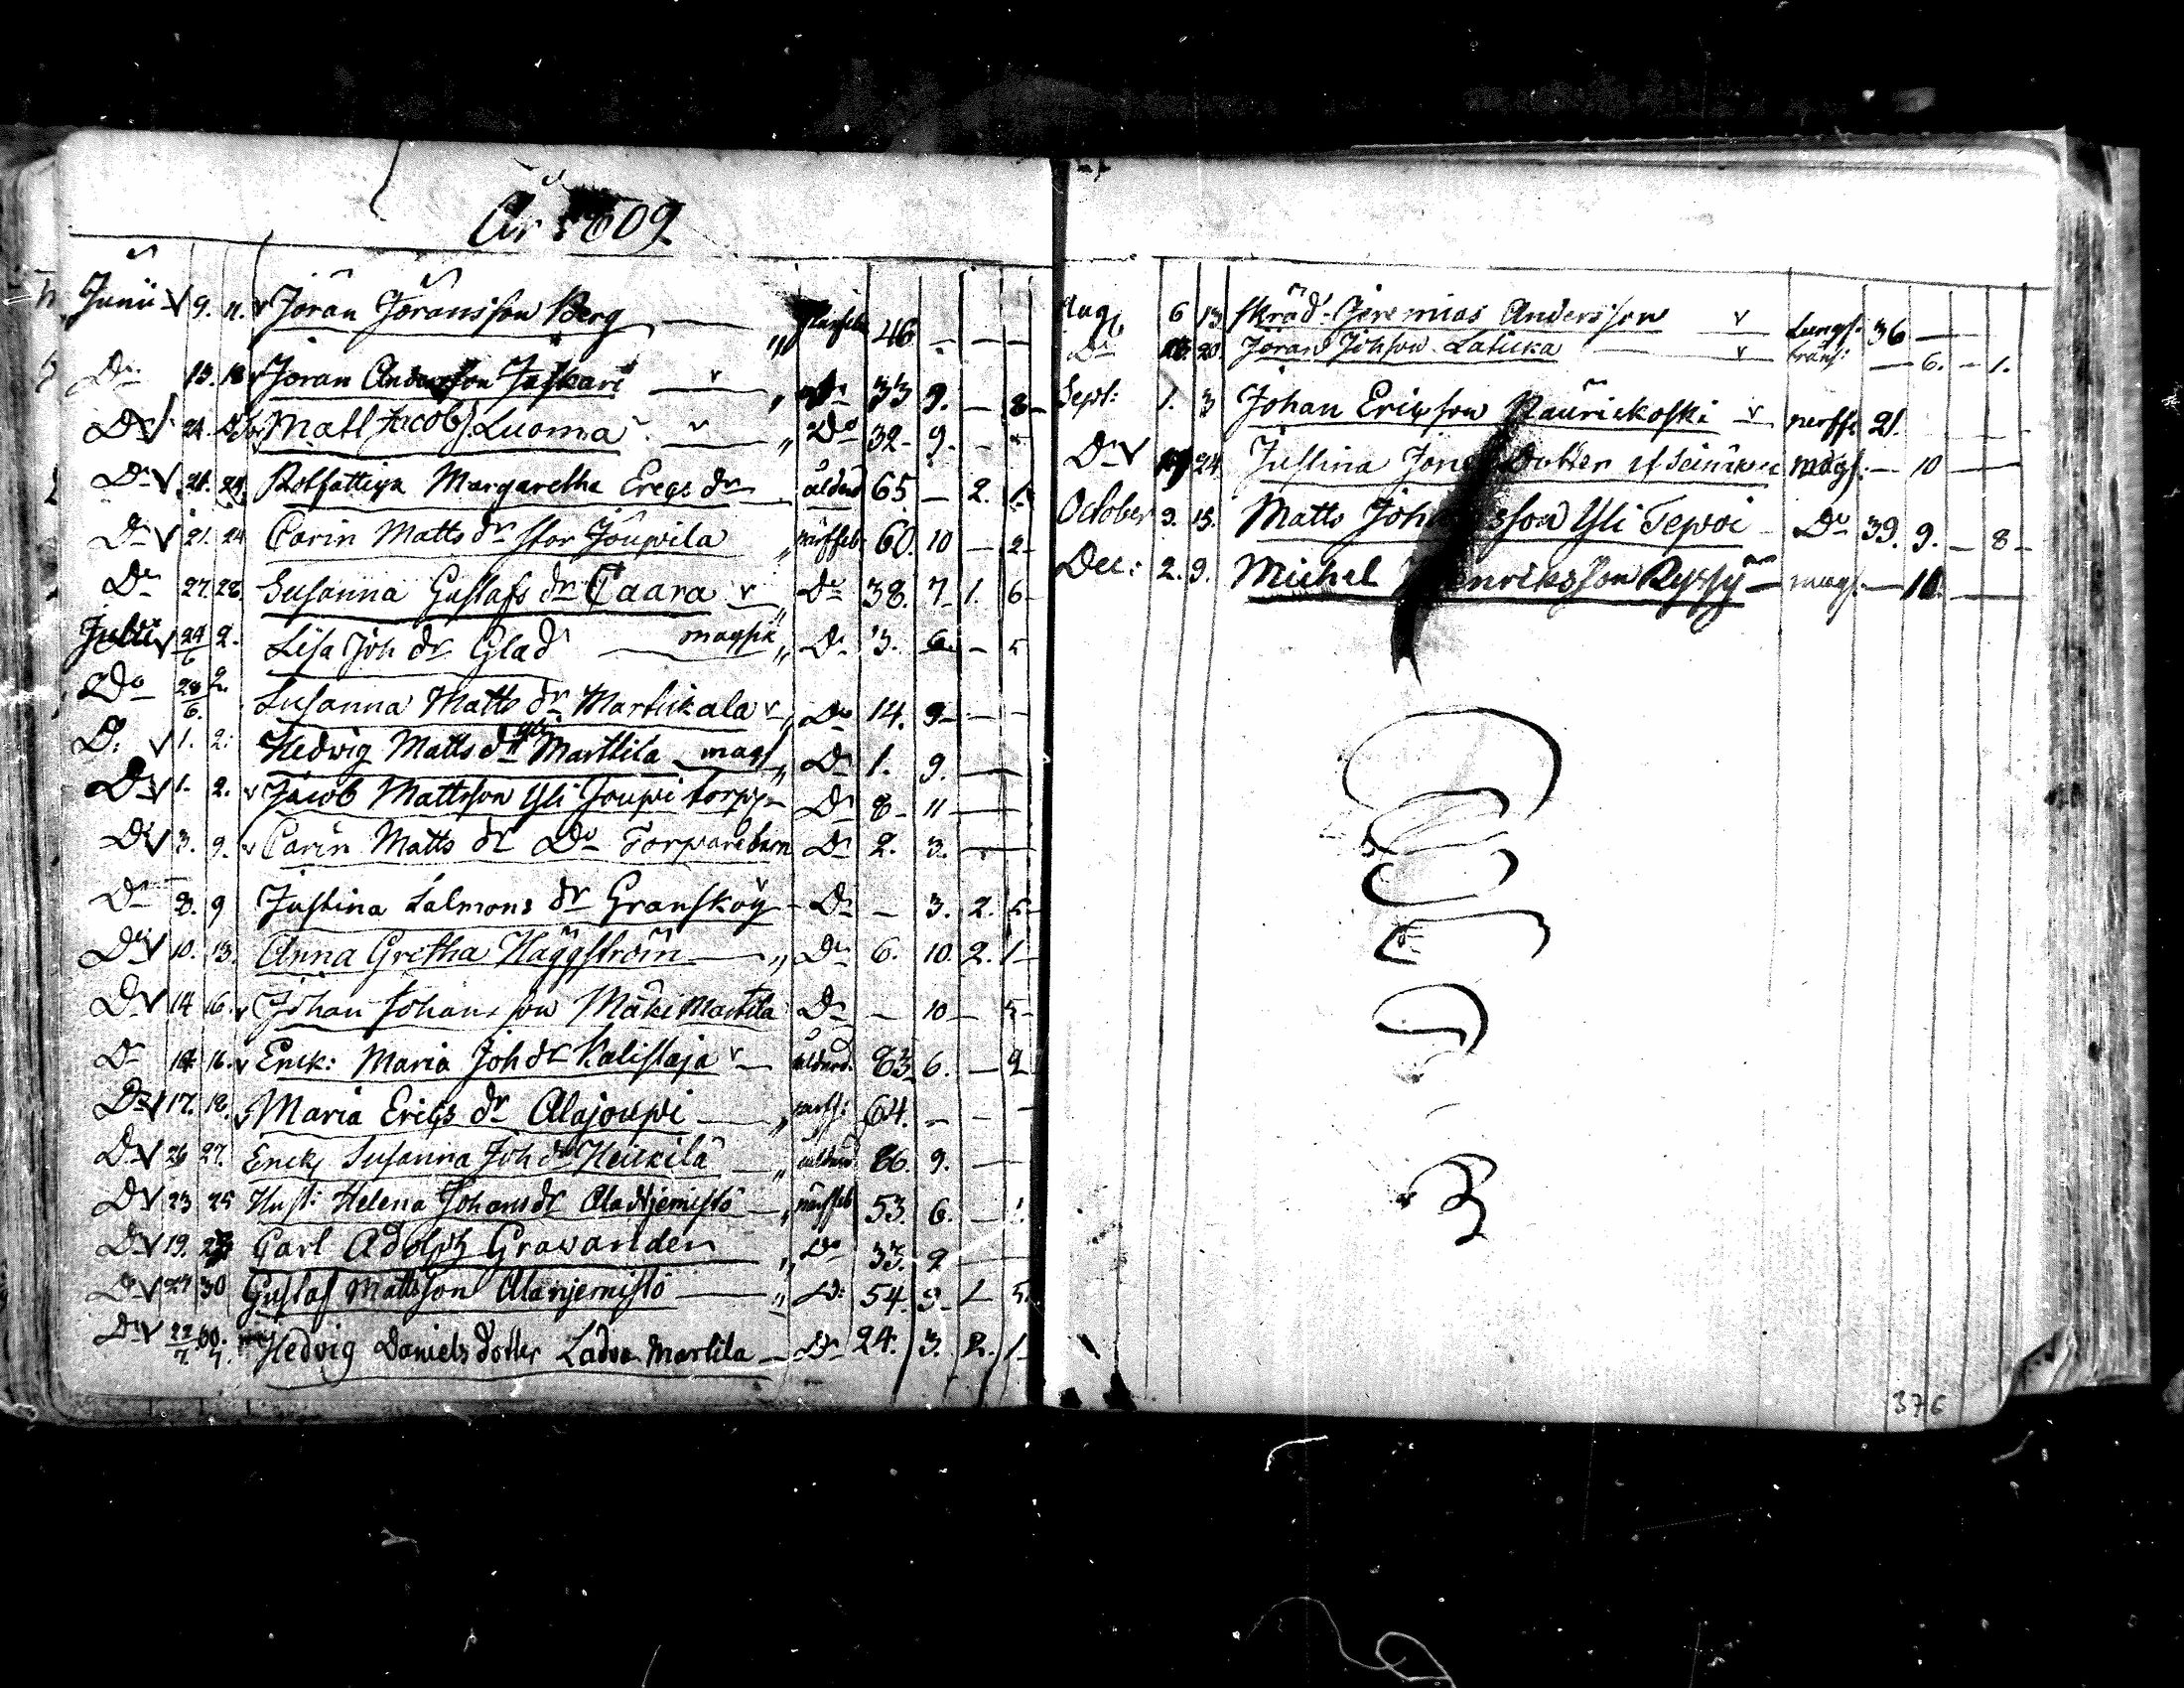 År 1809
Junii 9. 11. Jöran Jöransson Berg 46 - - -
Do 13. 18 Jöran Andersson Jaskari Do 33 9. - 8
Do 21. Matt Jacobs. Luoma Do 32 9. - -
Do 21. 24. Rotfattiga Margaretha Ereqs dr ålderd 65 - 2. 1.
Do 21. 24 Carin Matts dr stor Jouppila 60. 10 - 2
Do 27. 28. Susanna Gustafs dr Caara Do 38. 7. 1. 6
Julii 29/6 2. Lisa Joh dr Glad magsk Do 3. 6. - 5
Do 28/6. 2. Susanna Matts dr Martikala Do 14. 9 - -
Do 1. 2. Hedwig Matts dr Yli Marttila mags Do 1. 9. -
Do 1. 2. Jacob Mattsson Yli Joupi torp Do 8 - 11 -
Do 3. 9. Carin Matts dr Do Torparebarn Do 2. 3. -
Do 8. 9 Justina Salmons dr Granskög Do - 3. 2. 5
Do 10. 13. Anna Gretha Häggström Do 6. 10. 2. 1
Do 14 16. Johan Johansson Mäki Martila Do - 10 - 5
Do 14 16. Enck: Maria Joh dr Kalistaja ålderd. 83 6. - 2
Do 17. 18. Maria Eriqs dr Alajoupi nerfs: 64. - -
Do 26 27. Enck Susanna Joh dr Heickilä ålderd 86. 9. -
Do 23 25 Hust: Helena Johans dr Alanjemistö 53. 6. - 1.
Do 19. Carl Adolph Grawander Do 33. 9 -
Do 27 30 Gustaf Mattsson Alanjemistö Do 54. 3. 1 5.
Do 22/7. 30/7. Hedvig Daniels dotter Ladva Martila Do 24. 3. 2. 1
Aug 6 13 Skräd. Jeremias Andersson Lungs. 36 -
Do 20. Jöran Johsson Latucka bråns: - 6. - 1.
Sept: 1. 3 Johan Ericsson Raurickoski nerffe 21.
Do 24 Justina dotter mags. - 10 -
October 9. 15. Matts Johansson Yli Tepoi Do 39. 9. - 8 -
Dec: 2. 9. Michel Henriksson Ryssy mags. - 10. -
376